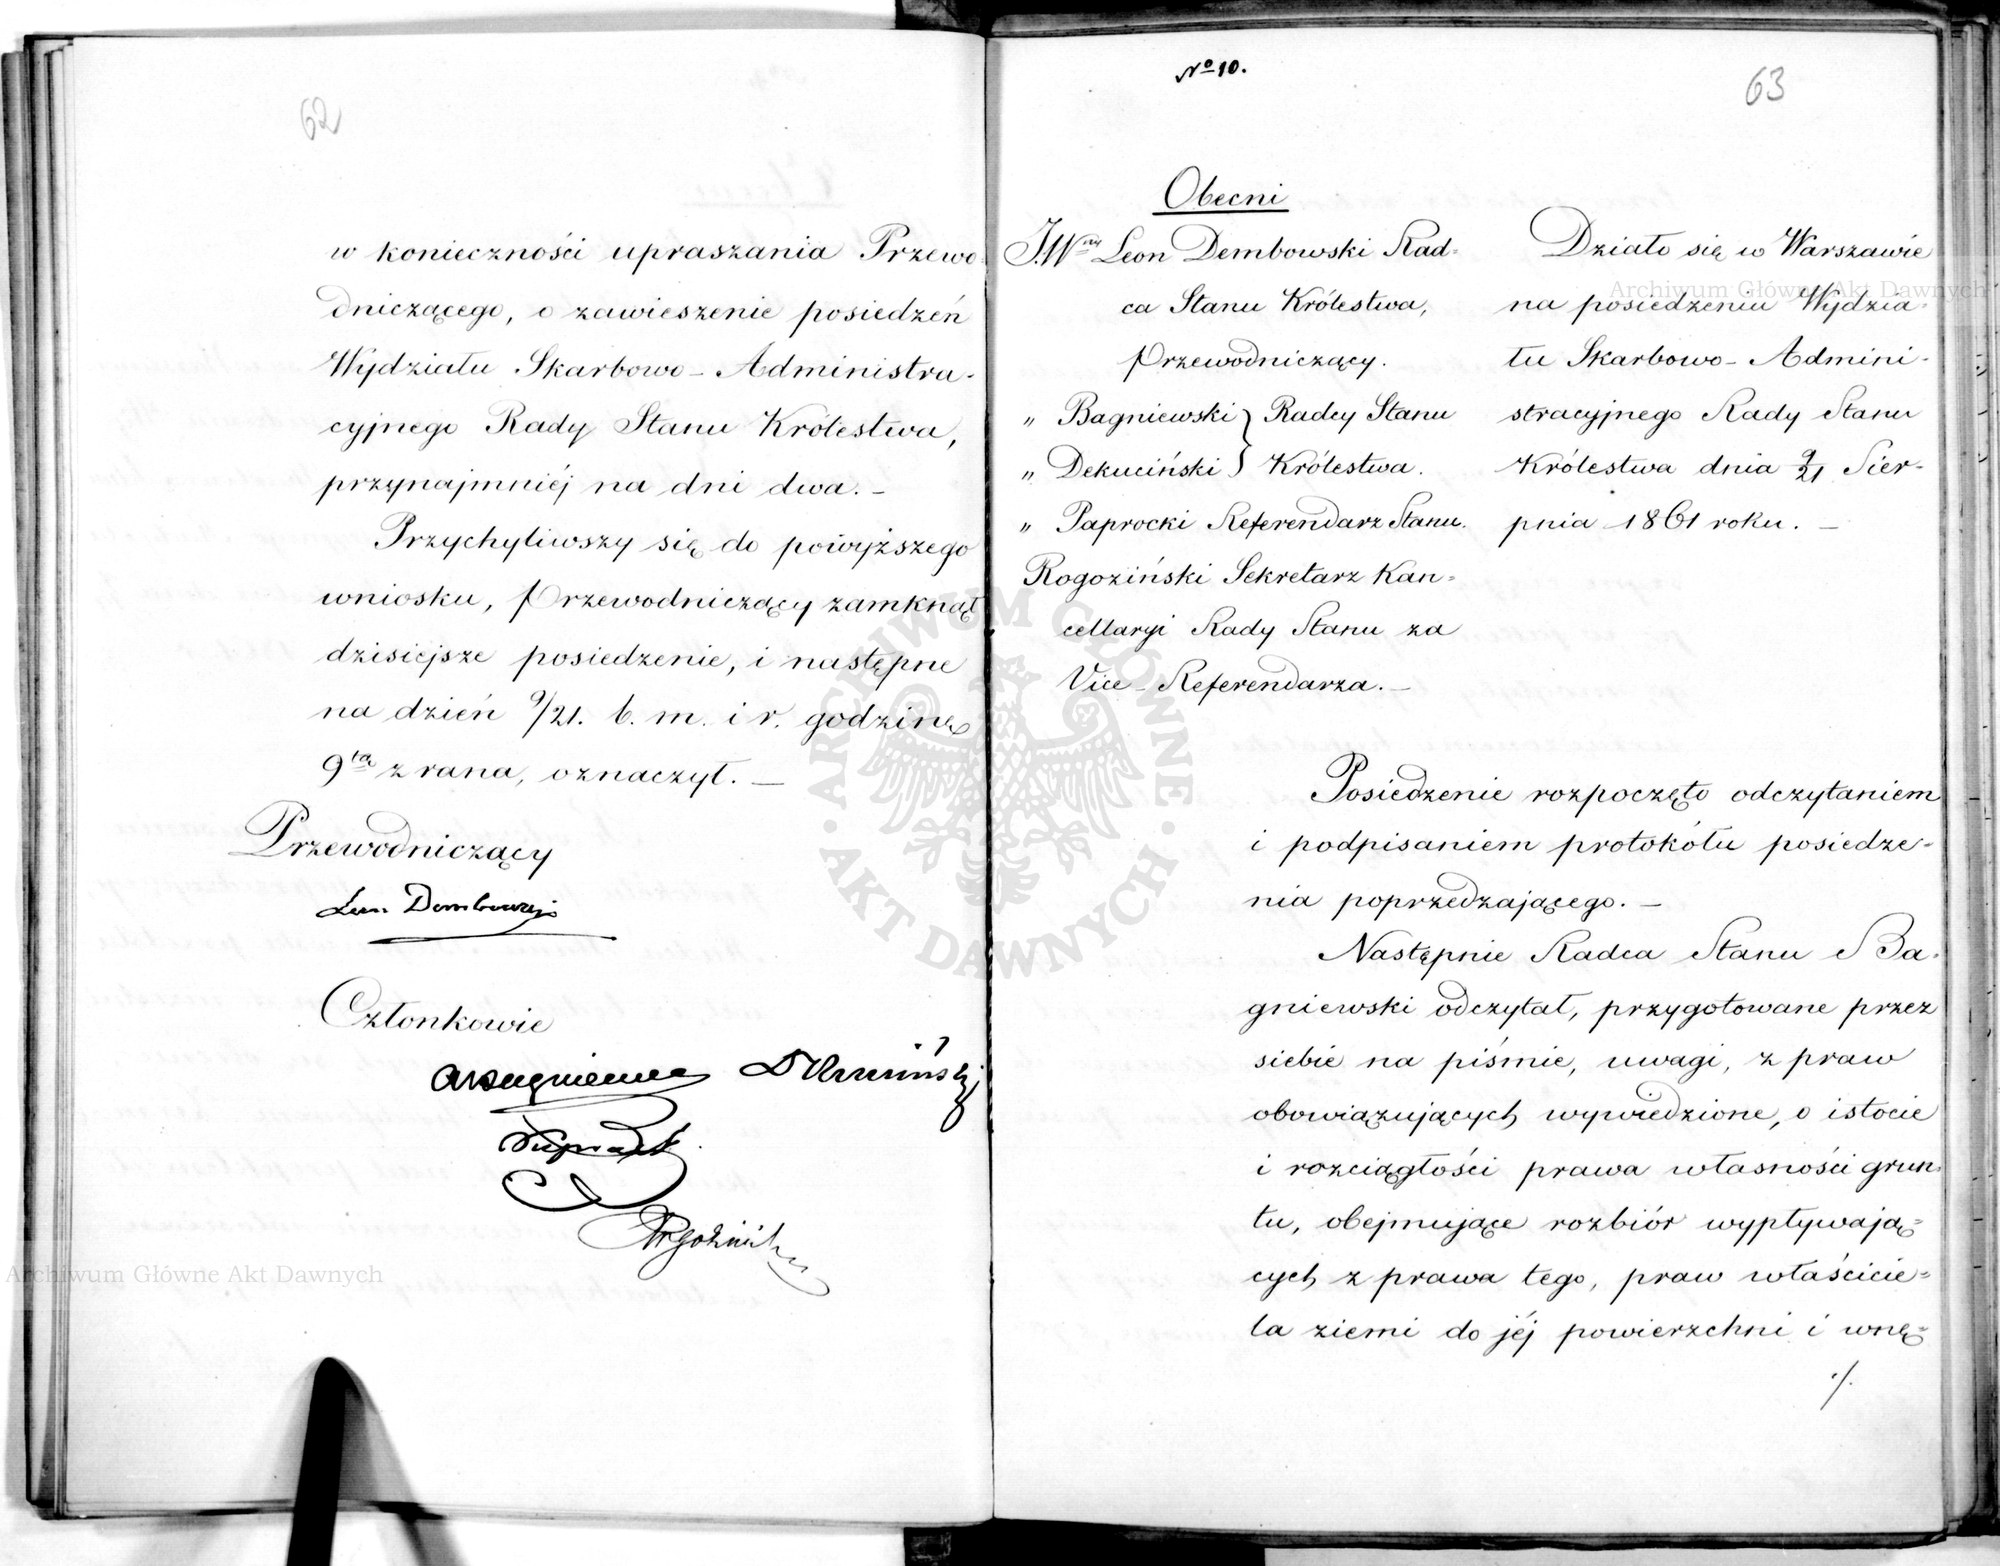 62
w konieczności upraszania Przewo-
dniczącego, o zawieszenie posiedzeń
Wydziału Skarbowo-Administra-
cyjnego Rady Stanu Królestwa,
przynajmniéj na dni dwa. —
Przychyliwszy się do powyższego
wniosku, Przewodniczący zamknął
dzisiejsze posiedzenie, i następne
na dzień 9/21. b. m. i r. godzinę
9tą z rana, oznaczył. —
Przewodniczący
Leon Dembowski
Członkowie
Rogoziński
Archiwum Główne Akt Dawnych
No 10.
63
Obecni
J.Wny Leon Dembowski Rad-
ca Stanu Królestwa,
Przewodniczący.
„ Bagniewski } Radcy Stanu
„ Dekuciński } Królestwa.
„ Paprocki Referendarz Stanu.
Rogoziński Sekretarz Kan-
cellaryi Rady Stanu za
Vice-Referendarza. —
Działo się w Warszawie
na posiedzeniu Wydzia-
łu Skarbowo-Admini-
stracyjnego Rady Stanu
Królestwa dnia 9/21 Sier-
pnia 1861 roku. —
Posiedzenie rozpoczęto odczytaniem
i podpisaniem protokółu posiedze-
nia poprzedzającego. —
Następnie Radca Stanu Ba-
gniewski odczytał, przygotowane przez
siebie na piśmie, uwagi, z praw
obowiązujących wywiedzione, o istocie
i rozciągłości prawa własności grun-
tu, obejmujące rozbiór wypływają-
cych z prawa tego, praw właścicie-
la ziemi do jéj powierzchni i wnę-
./.
Archiwum Główne Akt Dawnych
ARCHIWUM GŁÓWNE · AKT DAWNYCH ·